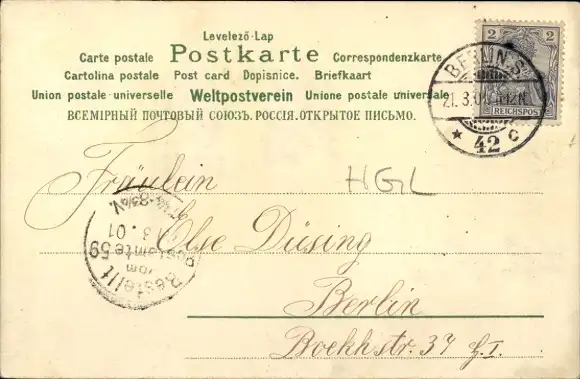 Levelező-Lap
Carte postale Postkarte Correspondenzkarte
Cartolina postale Post card Dopisnice. Briefkaart
Union postale universelle Weltpostverein Unione postale universale
ВСЕМІРНЫЙ ПОЧТОВЫЙ СОЮЗЪ. РОССІЯ. ОТКРЫТОЕ ПИСЬМО.
2 2
REICHSPOST
BERLIN.S.
21.3.01
* 42 c
Fräulein
HGL
Else Düsing
Berlin
Boekhstr. 37 H.I.
Bestellt
vom
Postamte 59
3.01